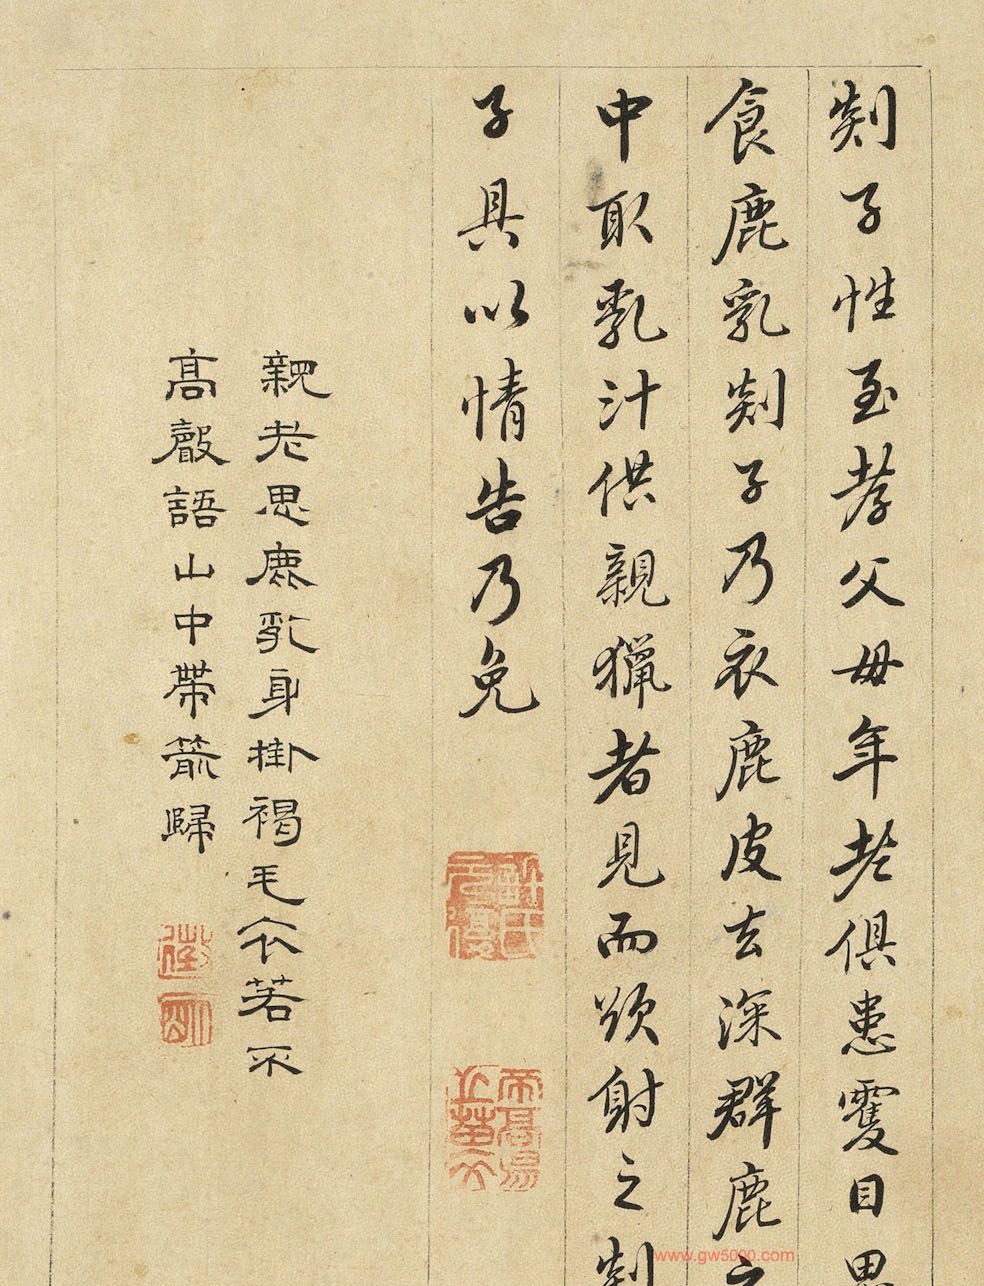 剡子性至孝父母年老俱患雙目思
食鹿乳剡子乃衣鹿皮去深群鹿之
中取乳汁供親獵者見而欲射之剡
子具以情告乃免
親老思鹿乳身掛褐毛衣若不
高聲語山中帶箭歸
徵明
www.gw5000.com